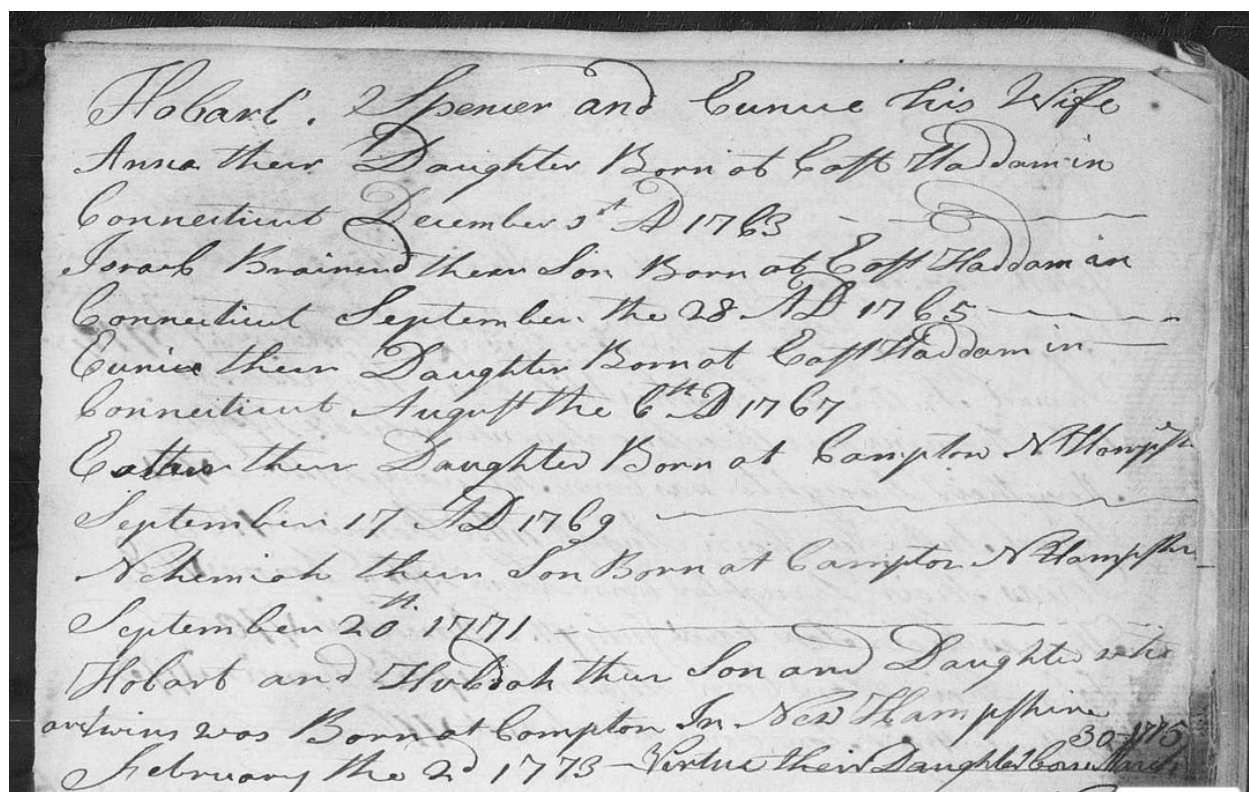 Hobart. Spencer and Eunice his Wife
Anna their Daughter Born at East Haddam in
Connecticut December 3st AD 1763
Israel Brainerd their Son Born at East Haddam in
Connecticut September the 28 AD 1765
Eunice their Daughter Born at East Haddam in
Connecticut August the 6th AD 1767
their Daughter Born at Campton N Hampshr
September 17 AD 1769
Nehemiah their Son Born at Campton N Hampshr
September 20th 1771
Hobart and Huldah their Son and Daughter who
are twins was Born at Compton In New Hampshire
30 1775
February the 2d 1773 - Virtue their Daughter born March